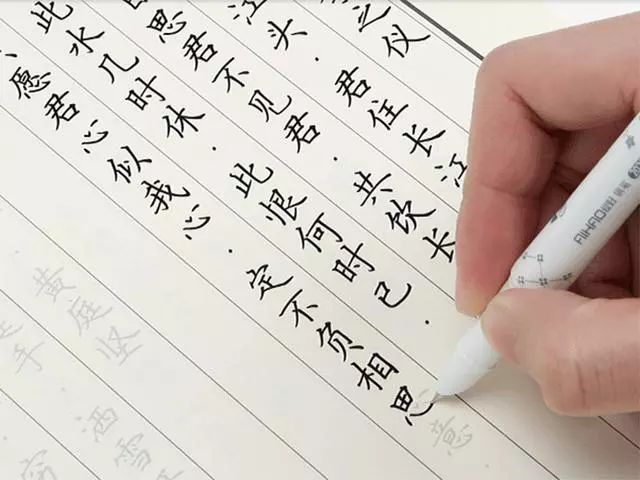 之仪
江头.君住长江
思君不见君.共饮长
此水几时休.此恨何时已.
愿君心似我心.定不负相思意
黄庭坚
洒雪
AIHAO